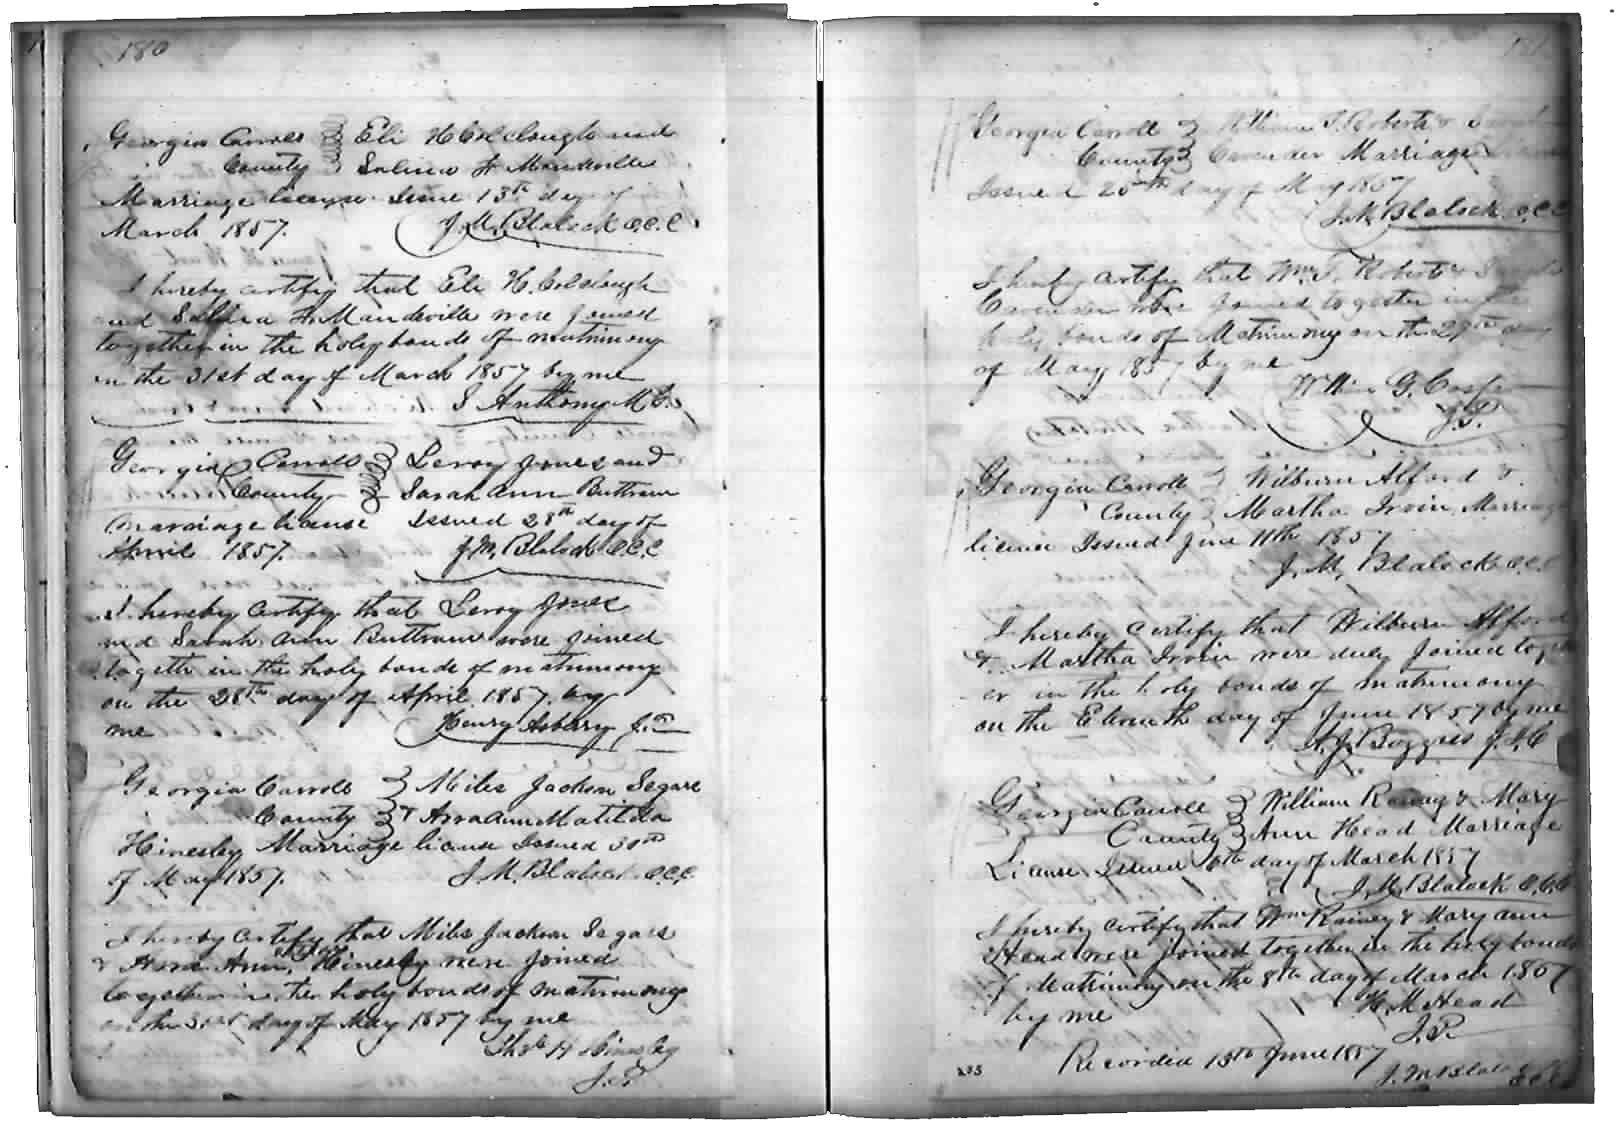 180
Georgia Carroll } Eli H Colclough and
County } Salina F Mandeville
Marriage license Issue 13th day of
March 1857. J. M. Blalock C.C.O.
I hereby certify that Eli H. Colclough
and Salina F. Mandeville were joined
together in the holy bonds of matrimony
on the 31st day of March 1857 by me
S Anthony M G.
Georgia Carroll } Leroy Jones and
County } Sarah Ann Buttram
Marriage license Issued 28th day of
April 1857. J. M. Blalock C.C.O.
I hereby certify that Leroy Jones
and Sarah Ann Buttram were joined
together in the holy bonds of matrimony
on the 28th day of April 1857. by
me Henry Asberry J.P.
Georgia Carroll } Miles Jackson Segars
County } & Ann Matilda
Hinesley Marriage license Issued 30th
of May 1857. J. M. Blalock O.C.C.
I hereby certify that Miles Jackson Segars
& Ann Hinesley were joined
together in the holy bonds of matrimony
on the 31st day of May 1857 by me
Thos H Hinesley
J.P.
Georgia Carroll } William T. Roberts &
County } Cavender Marriage
Issued 25th day of May 1857
J. M. Blalock O.C.C.
I hereby certify that Wm. T. Roberts &
Cavender were joined together in the
holy bonds of Matrimony on the 27th day
of May 1857 by me
J.P.
Georgia Carroll } Wilburn Alford &
County } Martha Irvin, Marriage
license Issued June 11th 1857
J. M. Blalock O.C.C.
I hereby certify that Wilburn Alford
& Martha Irvin were duly Joined togeth
er in the holy bonds of matrimony
on the Eleventh day of June 1857 by me
Boggess J.I.C
Georgia Carroll } William Rainey & Mary
County } Ann Head Marriage
License Issued 6th day of March 1857
J. M. Blalock O.C.C.
I hereby certify that Wm Rainey & Mary Ann
Head were joined together in the holy bonds
of Matrimony on the 8th day of March 1857
by me H. M Head
J.P.
Recorded 15th June 1857
J. M Blalock
235